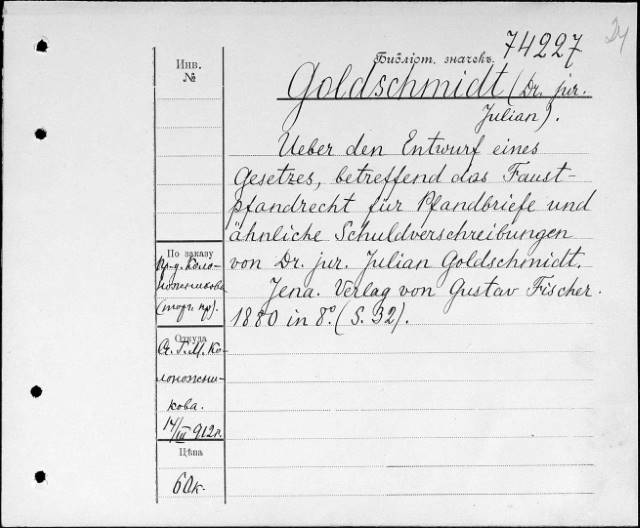 74227
Инв.
№
Библіот. значекъ.
Goldschmidt (Dr. jur.
Julian).
Ueber den Entwurf eines
Gesetzes, betreffend das Faust-
pfandrecht für Pfandbriefe und
ähnliche Schuldverschreibungen
von Dr. jur. Julian Goldschmidt.
Jena. Verlag von Gustav Fischer.
1880 in 8º. (S. 32).
По заказу
Коло-
(торг. пр).
Откуда
Г. М. Ко-
ложни-
кова.
17/III 912 г.
Цѣна
60к.